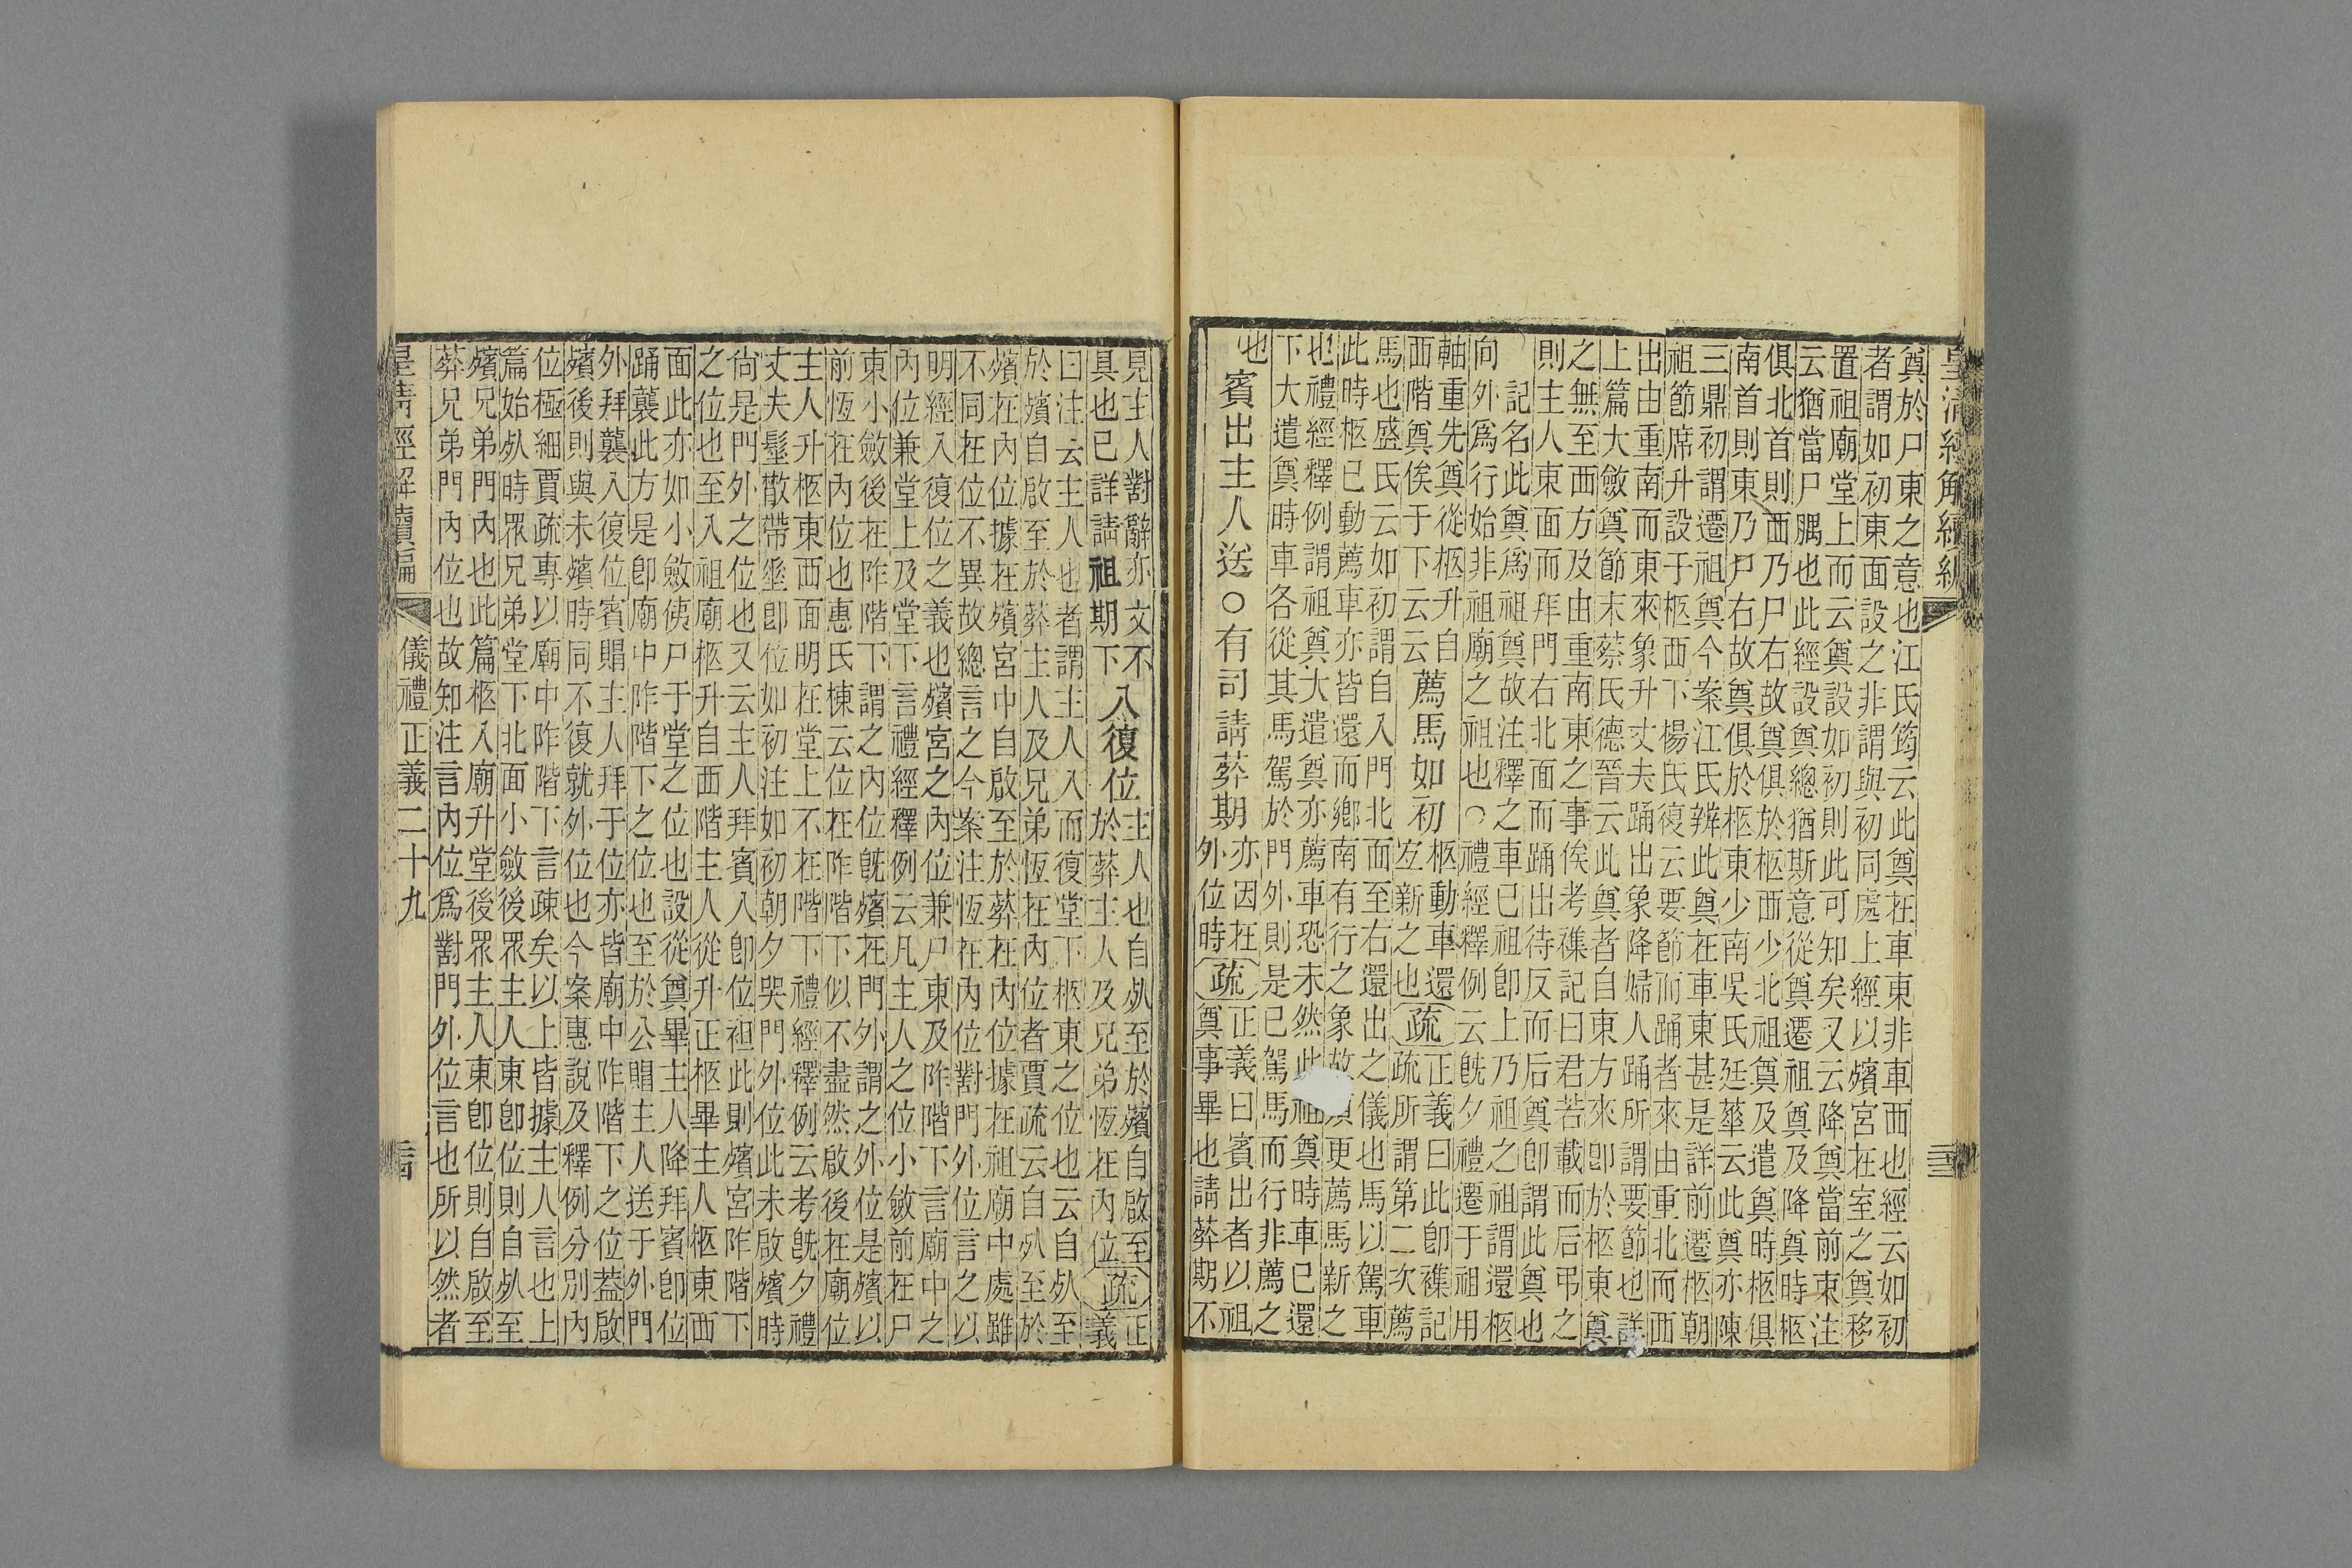 皇清經解續編
奠於尸東之意也江氏筠云此奠在車東非車西也經云如初
者謂如初東面設之非謂與初同處上經以殯宮在室之奠移
置祖廟堂上而云奠設如初則此可知矣又云降奠當前束注
云猶當尸腢也此經設奠總猶斯意從奠遷祖奠及降奠時柩
俱北首則西乃尸右故奠俱於柩西少北祖奠及遣奠時柩俱
南首則東乃尸右故奠俱於柩東少南吳氏廷華云此奠亦陳
三鼎初謂遷祖奠今案江氏辨此奠在車東甚是詳前遷柩朝
祖節席升設于柩西下楊氏復云要節而踊者來由重北而西
出由重南而東來象升丈夫踊出象降婦人踊所謂要節也詳
上篇大斂奠節末蔡氏德晉云此奠者自東方來卽於柩東奠
之無至西方及由重南東之事俟考襍記曰君若載而后弔之
則主人東面而拜門右北面而踊出待反而后奠卽謂此奠也
記名此奠爲祖奠故注釋之車已祖卽上乃祖之祖謂還柩
向外爲行始非祖廟之祖也○禮經釋例云旣夕禮遷于祖用
軸重先奠從柩升自
西階奠俟于下云云
薦馬如初
柩動車還
宜新之也
疏
正義曰此卽襍記
疏所謂第二次薦
馬也盛氏云如初謂自入門北面至右還出之儀也馬以駕車
此時柩已動薦車亦皆還而鄉南有行之象故更薦馬新之
也禮經釋例謂祖奠大遣奠亦薦車恐未然此祖奠時車已還
下大遣奠時車各從其馬駕於門外則是已駕馬而行非薦之
也
賓出主人送○有司請葬期
亦因在
外位時
疏
正義曰賓出者以祖
奠事畢也請葬期不
見主人對辭亦文不
具也已詳請祖期下
入復位
主人也自死至於殯自啟至
於葬主人及兄弟恆在內位
疏
正
義
曰注云主人也者謂主人入而復堂下柩東之位也云自死至
於殯自啟至於葬主人及兄弟恆在內位者賈疏云自死至於
殯在內位據在殯宮中自啟至於葬在內位據在祖廟中處雖
不同在位不異故總言之今案注恆在內位對門外位言之以
明經入復位之義也殯宮之內位兼尸東及阼階下言廟中之
內位兼堂上及堂下言禮經釋例云凡主人之位小斂前在尸
東小斂後在阼階下謂之內位旣殯在門外謂之外位是殯以
前恆在內位也惠氏棟云位在阼階下似不盡然啟後在廟位
主人升柩東西面明在堂上不在階下禮經釋例云考旣夕禮
丈夫髽散帶垂卽位如初注如初朝夕哭門外位此未啟殯時
尙是門外之位也又云主人拜賓入卽位袒此則殯宮阼階下
之位也至入祖廟柩升自西階主人從升正柩畢主人柩東西
面此亦如小斂侇尸于堂之位也設從奠畢主人降拜賓卽位
踊襲此方是卽廟中阼階下之位也至於公賵主人送于外門
外拜襲入復位賓賵主人拜于位亦皆廟中阼階下之位葢啟
殯後則與未殯時同不復就外位也今案惠說及釋例分別內
位極細賈疏專以廟中阼階下言疎矣以上皆據主人言也上
篇始死時眾兄弟堂下北面小斂後眾主人東卽位則自死至
殯兄弟門內也此篇柩入廟升堂後眾主人東卽位則自啟至
葬兄弟門內位也故知注言內位爲對門外位言也所以然者
皇清經解續編 儀禮正義二十九